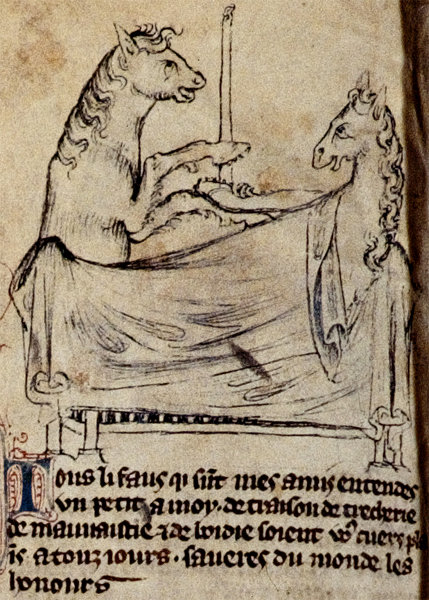 Tous li faus q̃ sũt mes amis entendes
vn petit a moy . de traison de trecherie
de mauuaistie ⁊ de boidie soient vo᷒ cuers
is a touz iours . saueres du monde les
honours